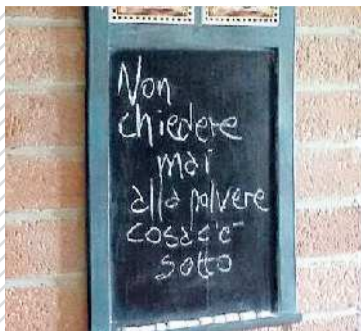 Non
chiedere
mai
alla polvere
cosa c'è
sotto